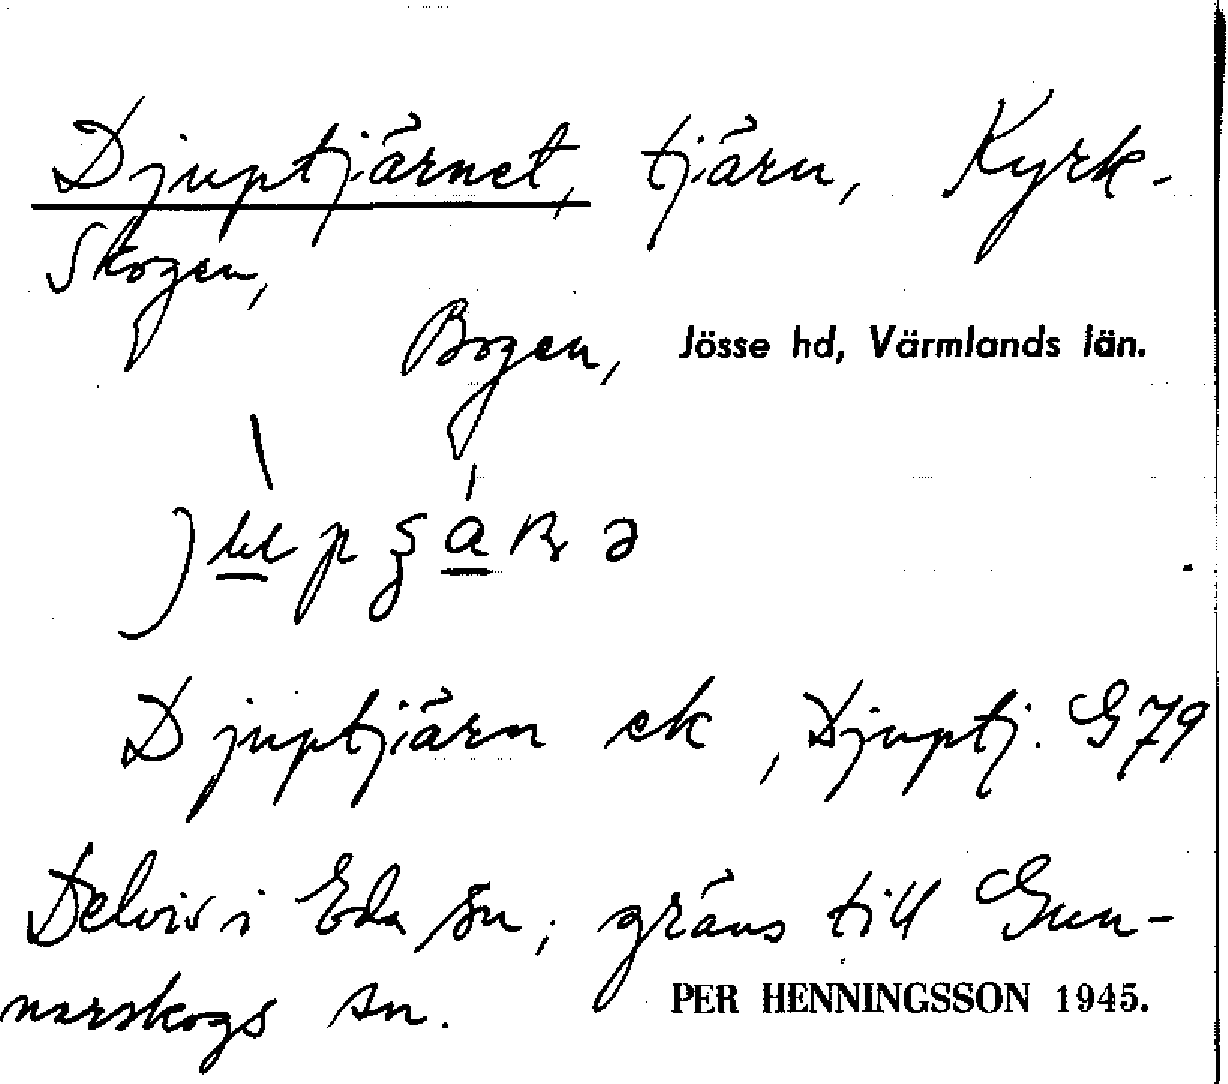 Djuptjärnet, tjärn, Kyrk-
skogen,
Bogen, Jösse hd, Värmlands län.
Djuptjärn ek, Djuptj. G79
Delvis i Eda sn; gräns till Gun-
narskogs sn.
PER HENNINGSSON 1945.